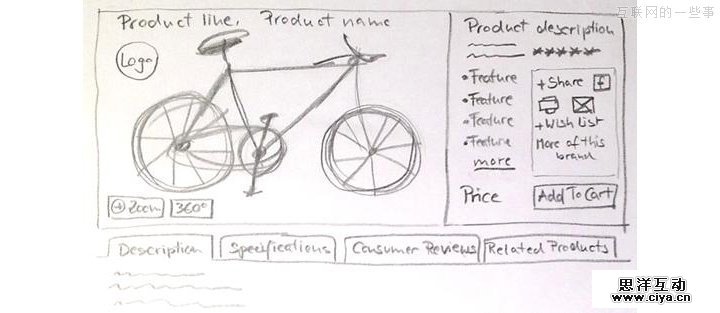 互联网的一些事
Product line, Product name
Logo
+ Zoom
360°
Product description
*****
• Feature
• Feature
• Feature
• Feature
more
+ Share f
+ Wish list
More of this
brand
Price
Add To Cart
Description
Specifications
Consumer Reviews
Related Products
思洋互动
www.ciya.cn